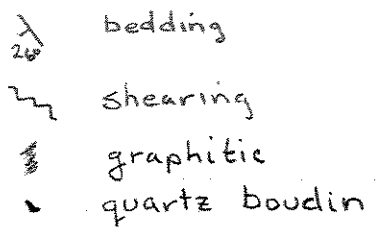 bedding
26°
shearing
graphitic
quartz boudin